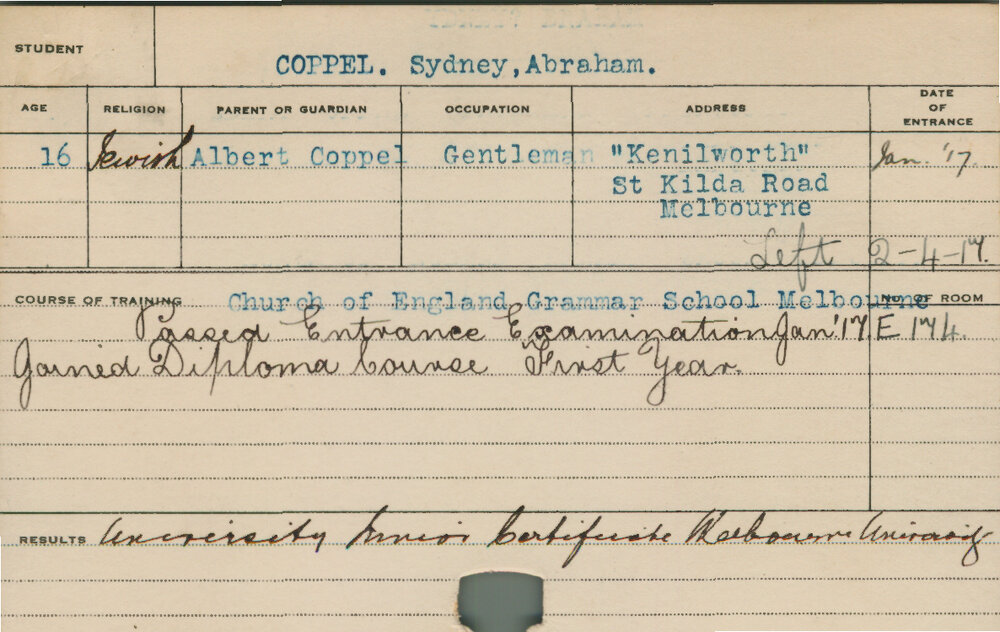 STUDENT
COPPEL. Sydney,Abraham.
AGE RELIGION PARENT OR GUARDIAN OCCUPATION ADDRESS DATE OF ENTRANCE
16 Jewish Albert Coppel Gentleman "Kenilworth" Jan. '17.
St Kilda Road
Melbourne
Left 2-4-17.
COURSE OF TRAINING Church of England Grammar School Melbourne No. OF ROOM
Passed Entrance Examination Jan. '17. E 174.
Joined Diploma Course First Year.
RESULTS University Junior Certificate Melbourne University